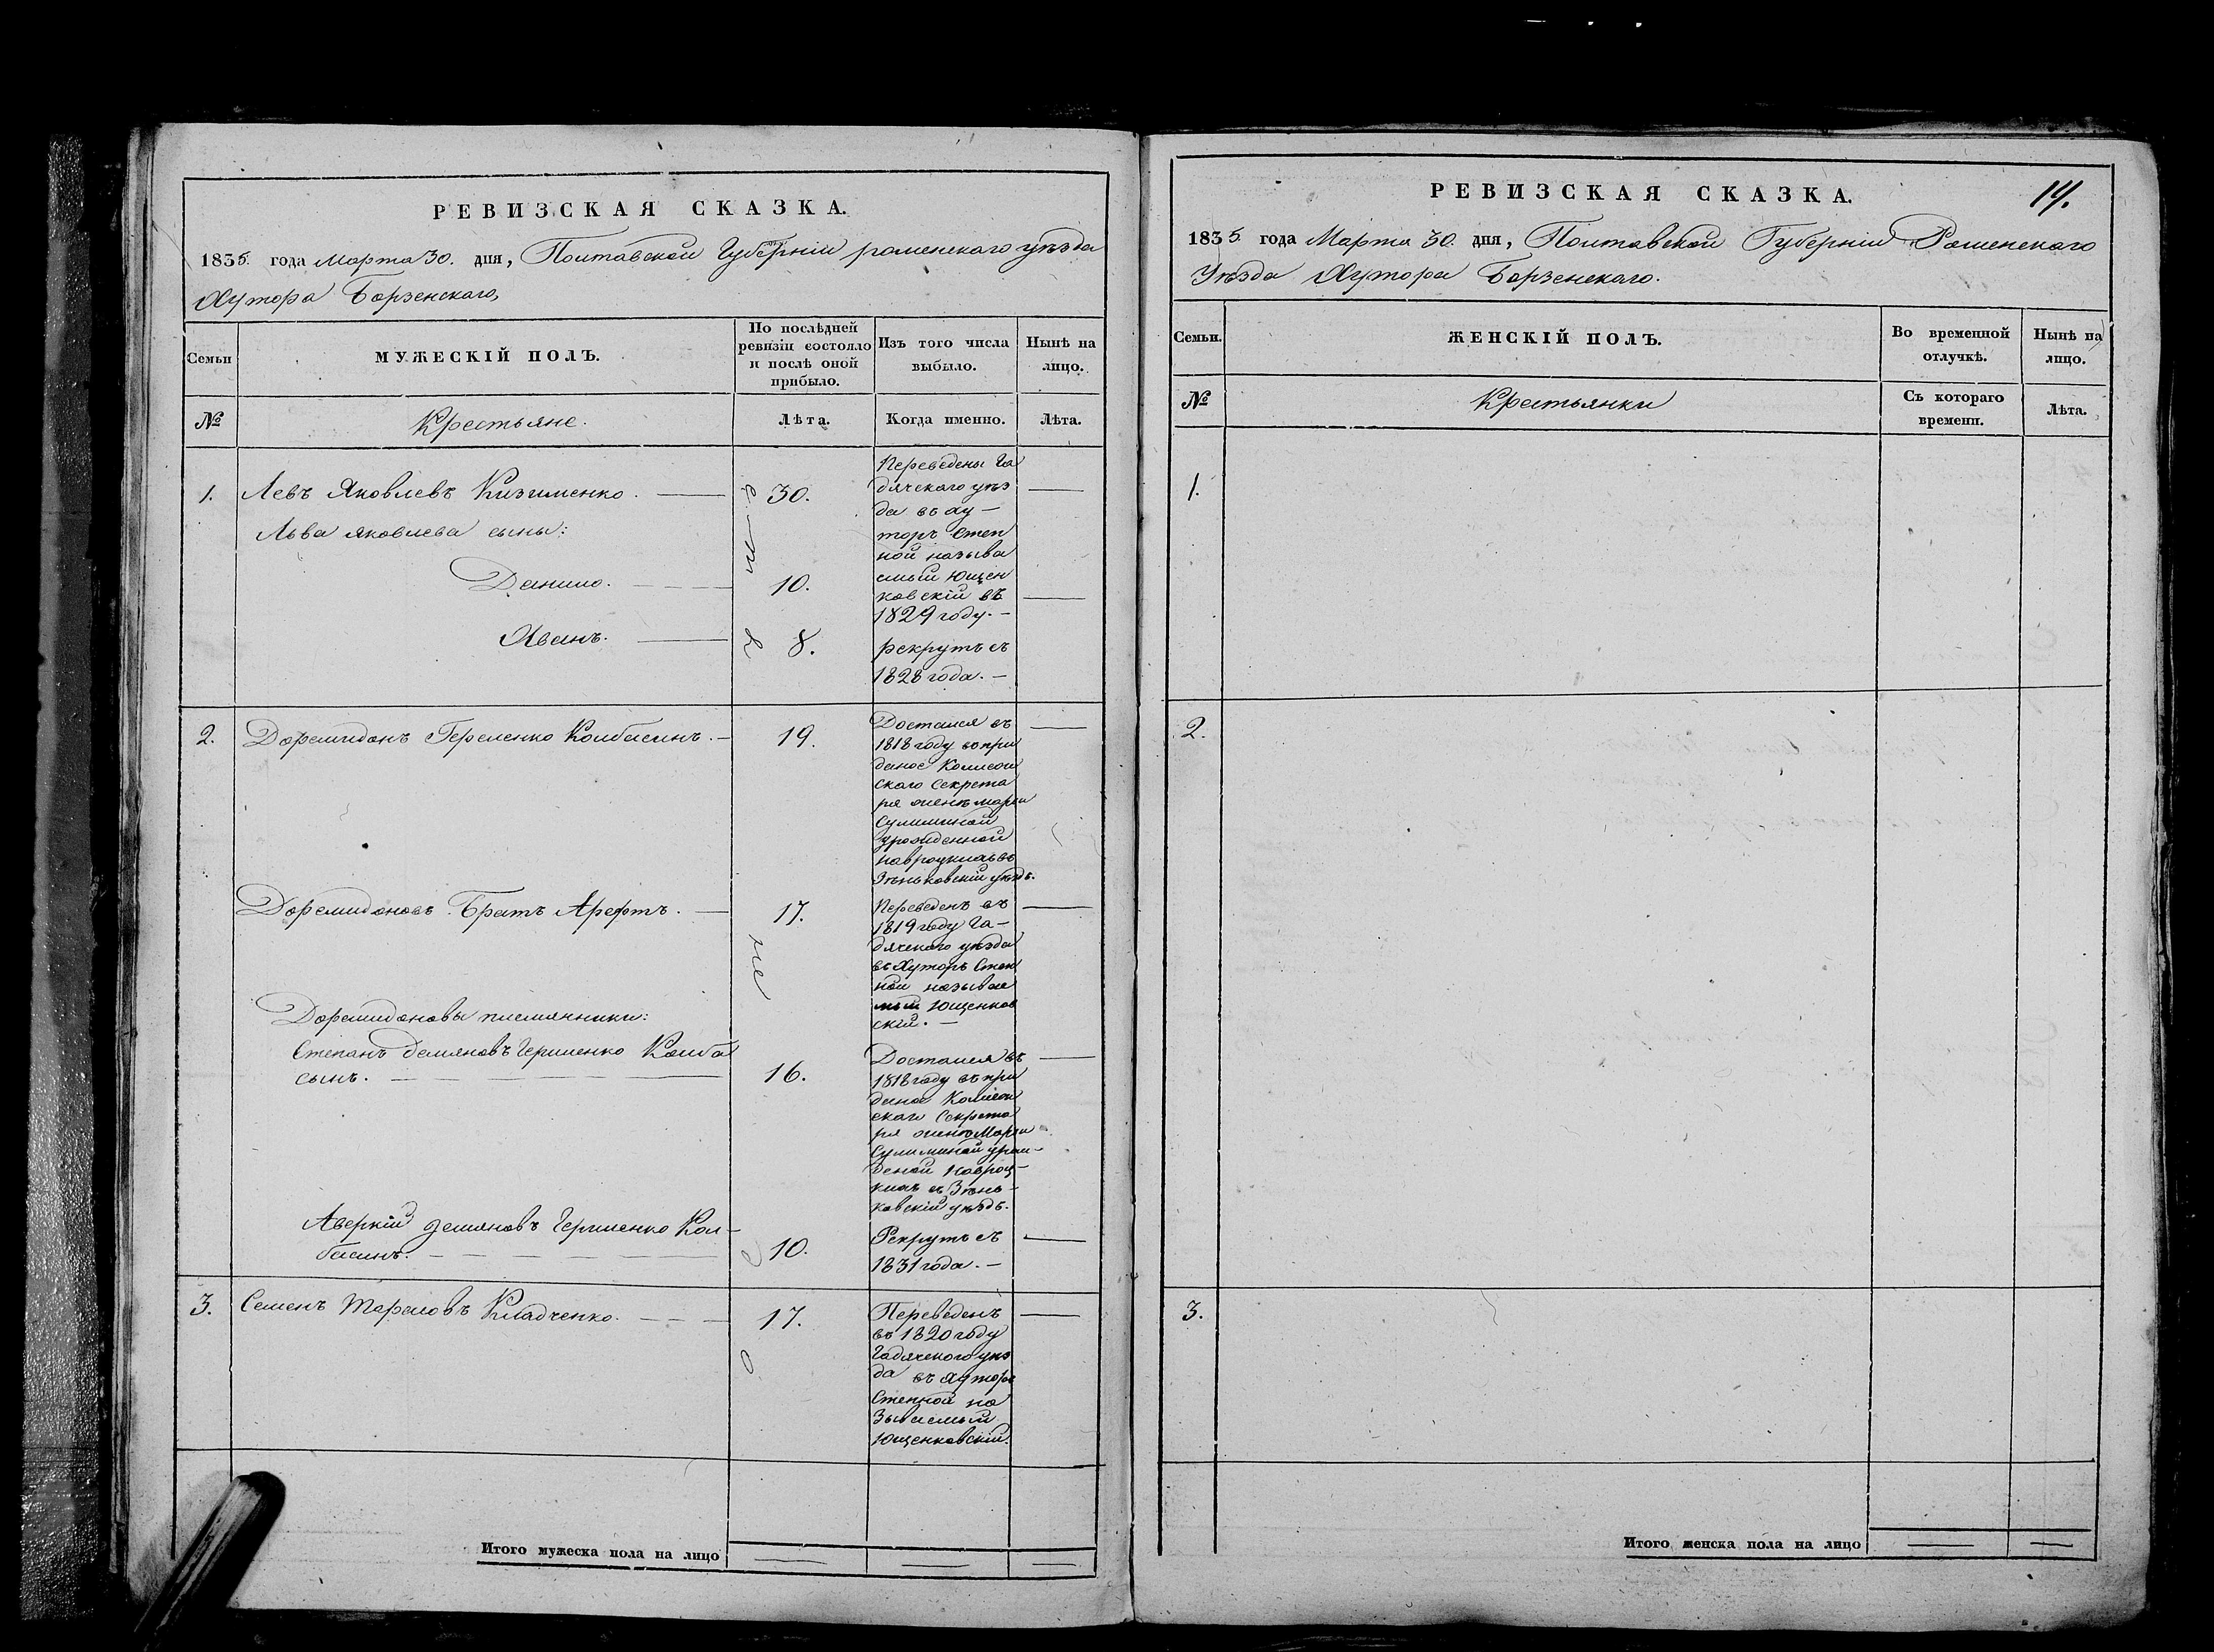 РЕВИЗСКАЯ СКАЗКА.
1835 года Марта 30. дня, Полтавской Губернiи роменскаго уѣзда
Хутора Борзенскаго,
Семьи
МУЖЕСКIЙ ПОЛЪ.
По послѣдней
ревизiи состояло
и послѣ оной
прибыло.
Изъ того числа
выбыло.
Нынѣ на
лицо.
№
Крестьяне.
Лѣта.
Когда именно.
Лѣта.
1. Левъ Яковлевъ Кизименко. 30.
Переведены Га
дячскаго уѣз
да въ ху-
торъ Степ
ной называ
емый Ющен
ковскiй въ
1829 году.
Льва Яковлева сыны:
Данило. 10.
Иванъ. 8.
рекрутъ съ
1828 года.
2. Доремидонъ Колбасинъ. 19.
Достался въ
1818 году въ при
даное Коллеж
скаго Секрета
ря женѣ Марѳи
Сулиминой
урожденной
Навроцкихъ въ
Зѣньковскiй уѣздъ.
Доремидоновъ Братъ Арефтъ. 17.
Переведенъ въ
1819 году Га-
дячскаго уѣзда
въ Хуторъ Степ
ной называе
мый Ющенков
скiй.
Доремидоновы племянники:
Степанъ Демяновъ Колба
сынъ. 16.
Достался въ
1818 году въ при
даное
скаго Секрета
ря женѣ Марѳи
Сулиминой урож-
деной Навроц-
кихъ въ Зѣнь-
ковскiй уѣздъ.
Аверкiй Демяновъ Кол-
басинъ. 10.
Рекрутъ съ
1831 года.
3. Семенъ Кладченко. 17.
Переведенъ
въ 1820 году
Гадячскаго уѣз
да въ Хуторъ
Степной на
зываемый
Ющенковскiй.
Итого мужеска пола на лицо
РЕВИЗСКАЯ СКАЗКА.
14.
1835 года Марта 30. дня, Полтавской Губернiи Роменскаго
Уѣзда Хутора Борзенскаго.
Семьи.
ЖЕНСКIЙ ПОЛЪ.
Во временной
отлучкѣ.
Нынѣ на
лицо.
№
Крестьянки
Съ котораго
времени.
Лѣта.
1.
2.
3.
Итого женска пола на лицо